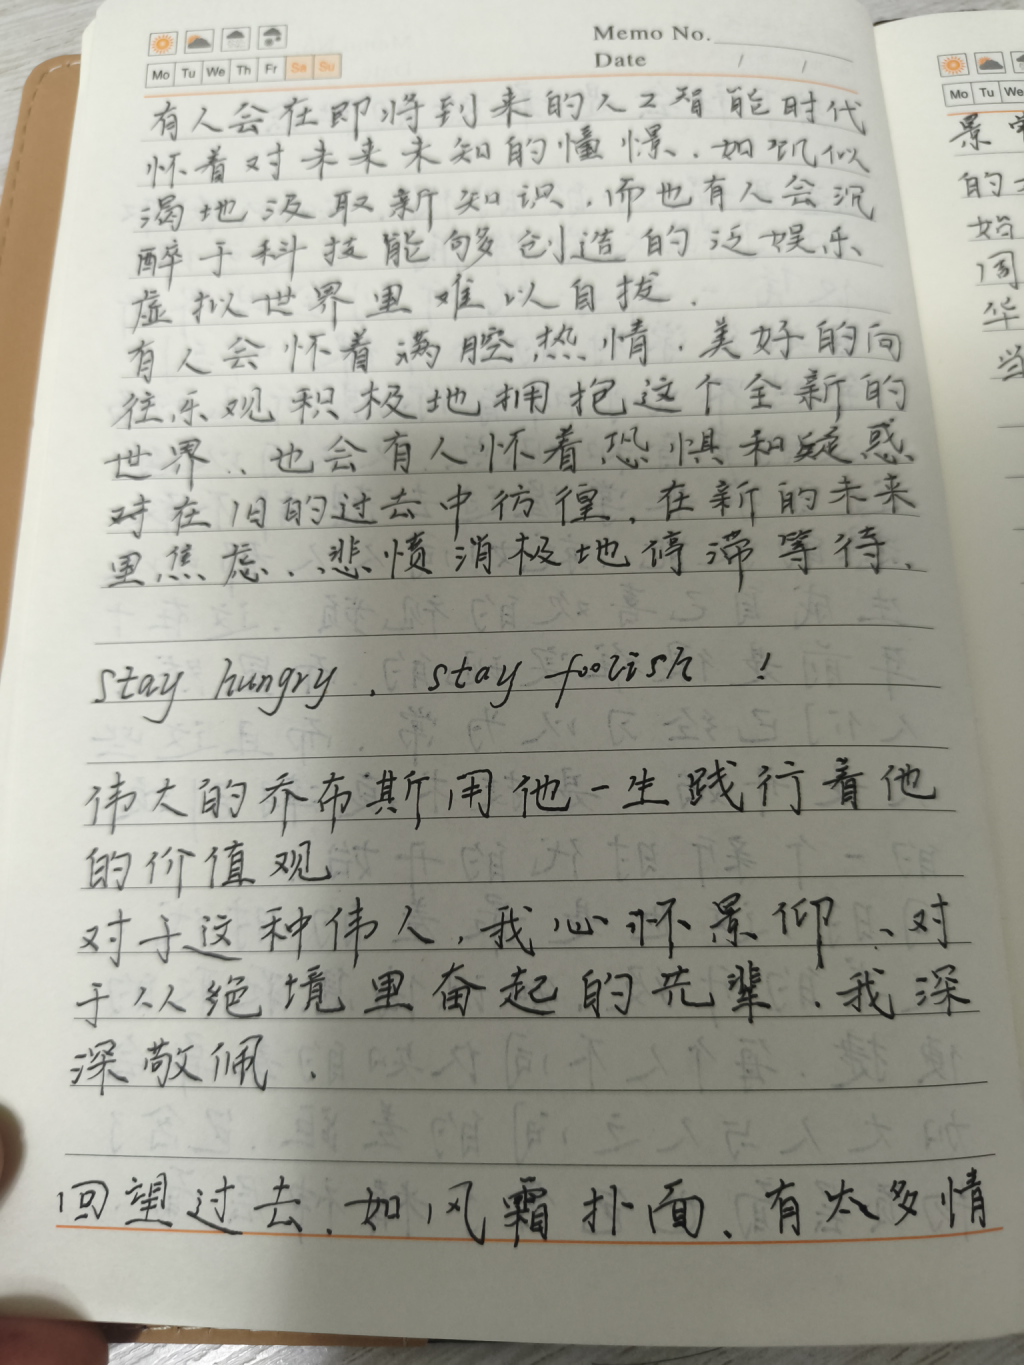 Memo No.
Date / /
Mo Tu We Th Fr Sa Su
有人会在即将到来的人工智能时代
怀着对未来未知的憧憬.如饥似
渴地汲取新知识.而也有人会沉
醉于科技能够创造的泛娱乐
虚拟世界里难以自拔.
有人会怀着满腔热情.美好的向
往乐观积极地拥抱这个全新的
世界..也会有人怀着恐惧和疑惑
对在旧的过去中彷徨.在新的未来
里焦虑.悲愤消极地停滞等待.
stay hungry . stay foolish !
伟大的乔布斯用他一生践行着他
的价值观
对于这种伟人.我心怀景仰、对
于从绝境里奋起的先辈.我深
深敬佩.
回望过去.如风霜扑面、有太多情
Mo Tu We
景
的
始
周
华
当